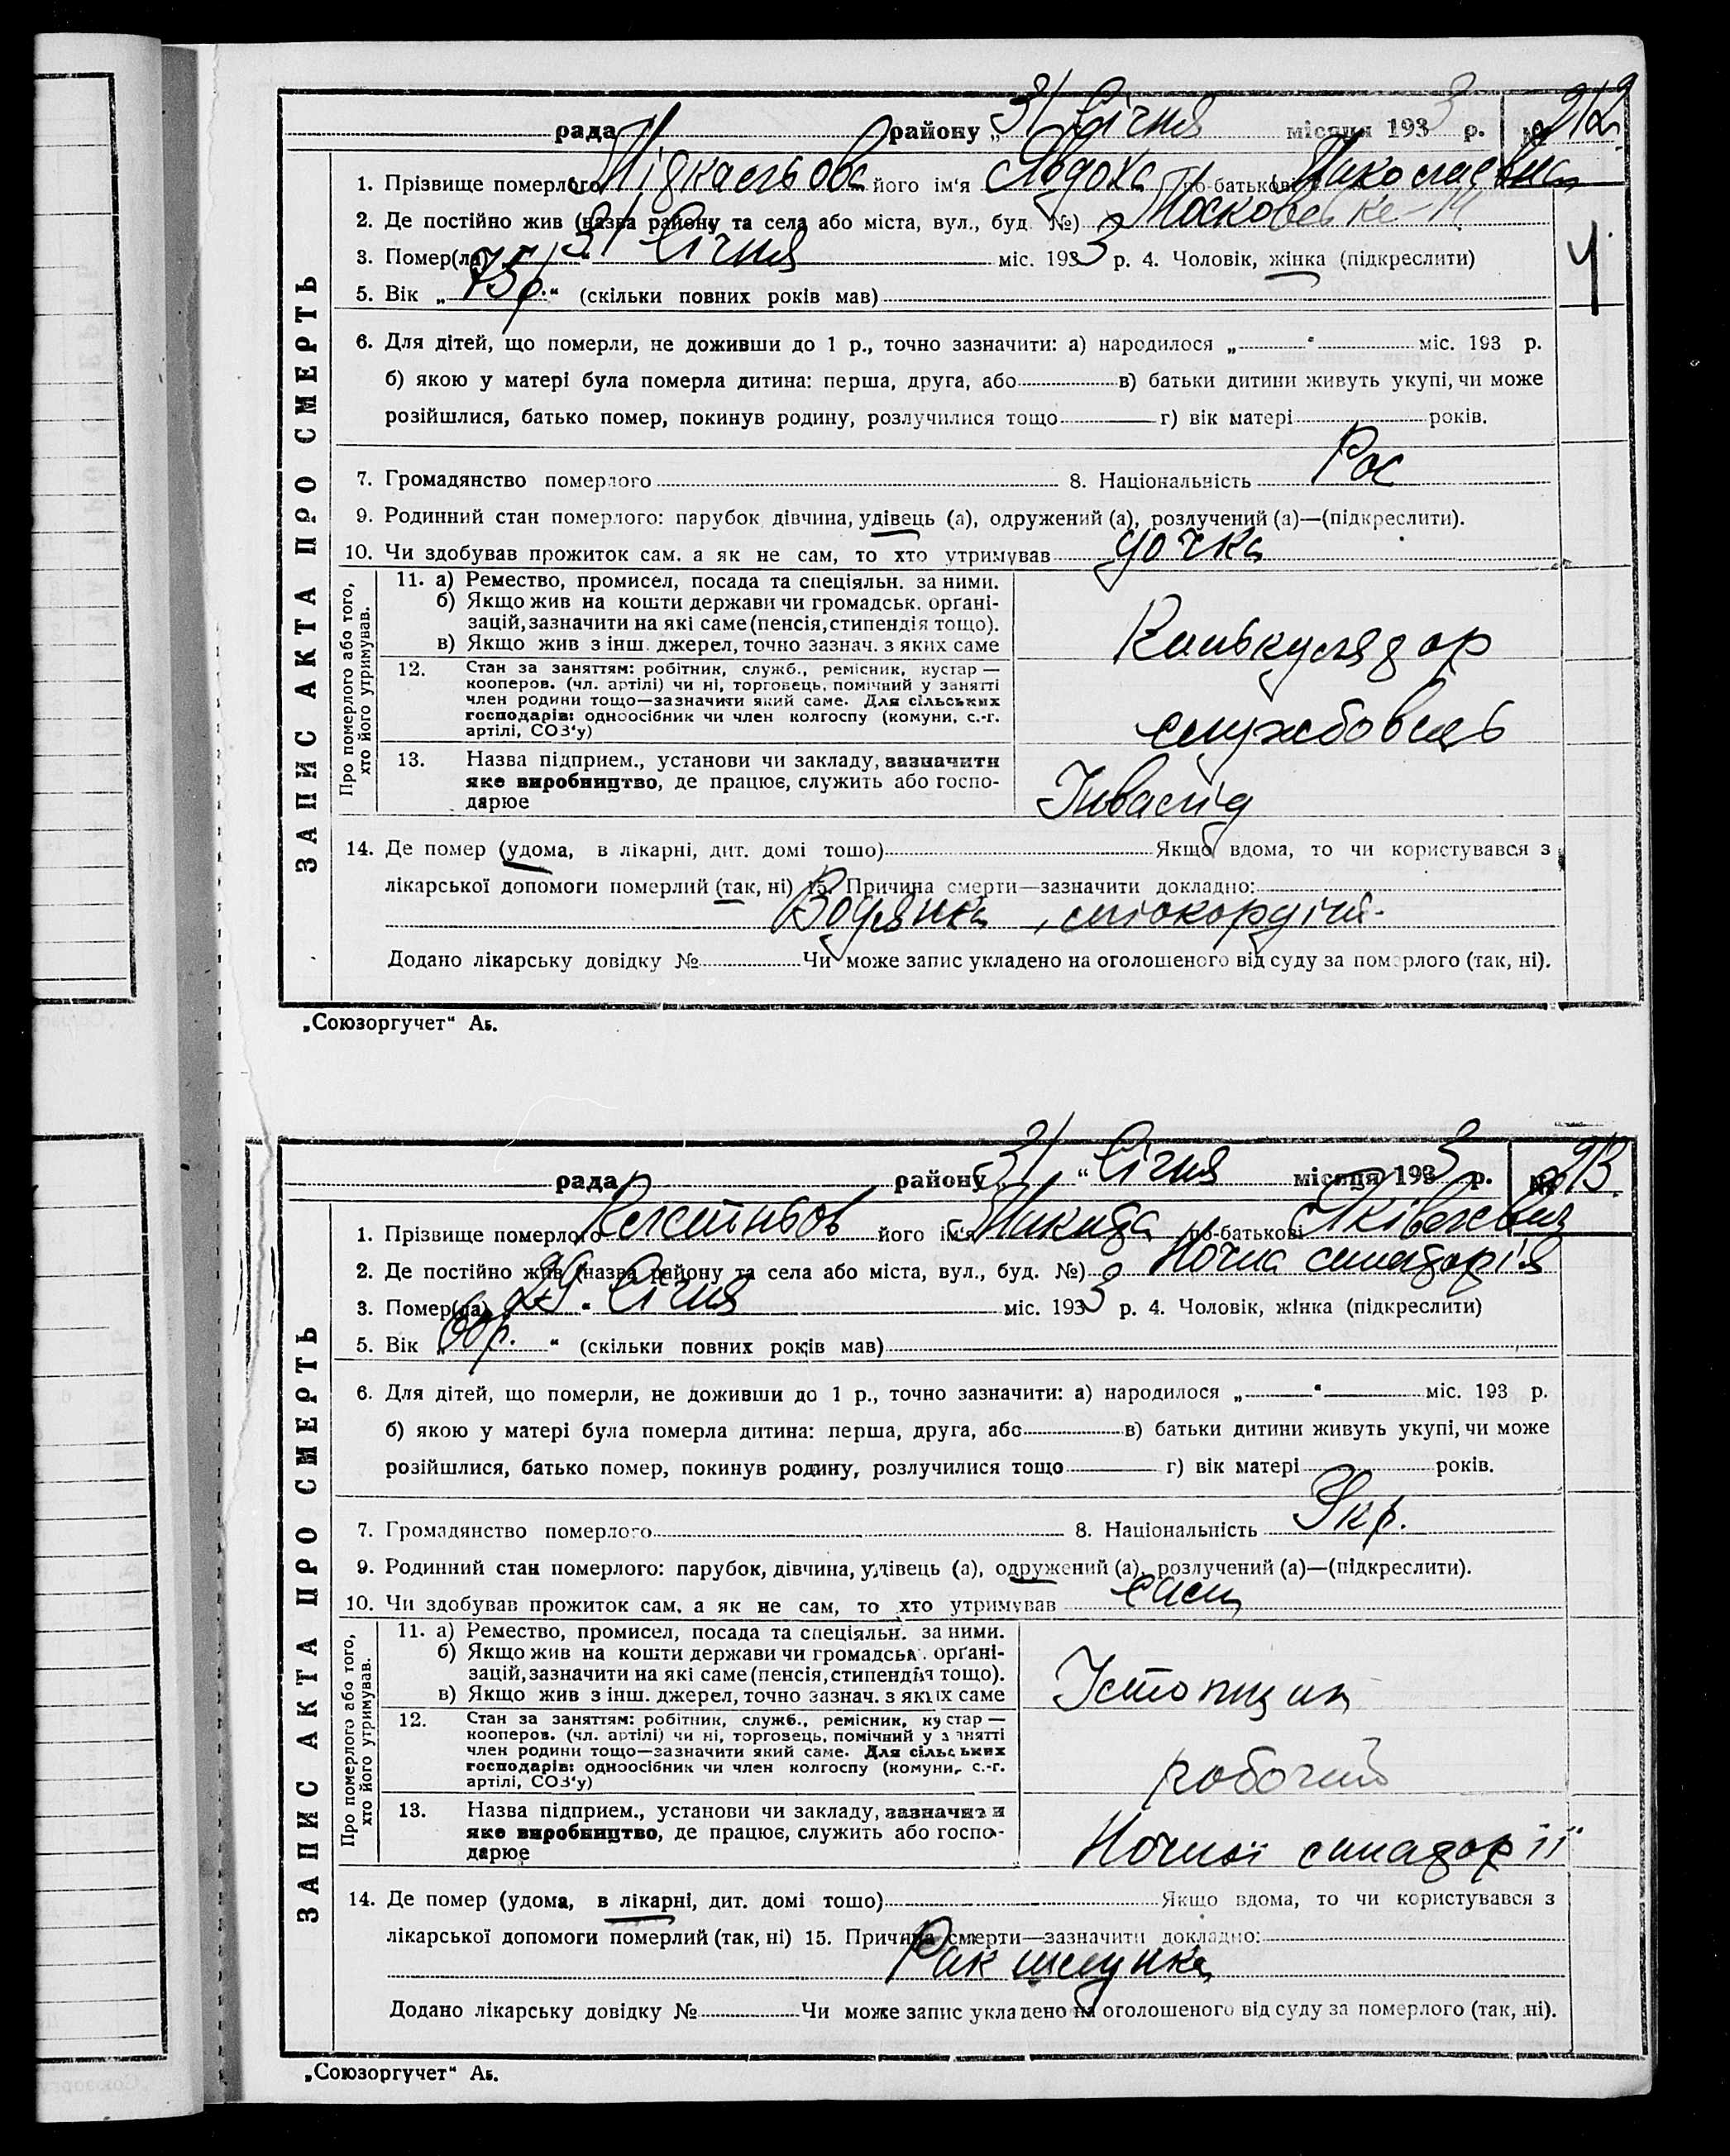 рада району „31 Січня місяця 1933 р. № 212
1. Прізвище померлого Підкасьова його ім'я Явдоха по-батькові Миколаєвна
2. Де постійно жив (назва району та села або міста, вул., буд. №) Московське-14
3. Помер(ла) 31 " Січня міс. 1933 р. 4. Чоловік, жінка (підкреслити)
5. Вік „ 75 р. " (скільки повних років мав)
6. Для дітей, що померли, не доживши до 1 р., точно зазначити: а) народилося „ " міс. 193 р.
б) якою у матері була померла дитина: перша, друга, або в) батьки дитини живуть укупі, чи може
розійшлися, батько помер, покинув родину, розлучилися тощо г) вік матері років.
7. Громадянство померлого 8. Національність Рос
9. Родинний стан померлого: парубок дівчина, удівець (а), одружений (а), розлучений (а)—(підкреслити).
10. Чи здобував прожиток сам. а як не сам, то хто утримував дочка
ЗАПИС АКТА ПРО СМЕРТЬ
Про померлого або того,
хто його утримував.
11. а) Ремество, промисел, посада та спеціяльн. за ними.
б) Якщо жив на кошти держави чи громадськ. органі-
зацій, зазначити на які саме (пенсія, стипендія тощо).
в) Якщо жив з інш. джерел, точно зазнач. з яких саме
Калькулядор
12. Стан за заняттям: робітник, служб., ремісник, кустар —
кооперов. (чл. артілі) чи ні, торговець, помічний у занятті
член родини тощо—зазначити який саме. Для сільських
господарів: одноосібник чи член колгоспу (комуни, с.-г.
артілі, СОЗ'у)
службовець
13. Назва підприєм., установи чи закладу, зазначити
яке виробництво, де працює, служить або госпо-
дарює
Інвалід
14. Де помер (удома, в лікарні, дит. домі тощо) Якщо вдома, то чи користувався з
лікарської допомоги померлий (так, ні) 15. Причина смерти—зазначити докладно:
Водянка, міокордічн.
Додано лікарську довідку № Чи може запис укладено на оголошеного від суду за померлого (так, ні).
„Союзоргучет" Аб.
рада району „31 " Січня місяця 1933 р. № 213
1. Прізвище померлого його ім'я Микита по-батькові Яківлевич
2. Де постійно жив (назва району та села або міста, вул., буд. №) Ночна санаторія
3. Помер(ла) 29 " Січня міс. 1933 р. 4. Чоловік, жінка (підкреслити)
5. Вік „ 60 р. " (скільки повних років мав)
6. Для дітей, що померли, не доживши до 1 р., точно зазначити: а) народилося „ " міс. 193 р.
б) якою у матері була померла дитина: перша, друга, або в) батьки дитини живуть укупі, чи може
розійшлися, батько помер, покинув родину, розлучилися тощо г) вік матері років.
7. Громадянство померлого 8. Національність Укр.
9. Родинний стан померлого: парубок, дівчина, удівець (а), одружений (а), розлучений (а)—(підкреслити).
10. Чи здобував прожиток сам. а як не сам, то хто утримував сам
ЗАПИС АКТА ПРО СМЕРТЬ
Про померлого або того,
хто його утримував.
11. а) Ремество, промисел, посада та спеціяльн. за ними.
б) Якщо жив на кошти держави чи громадськ. органі-
зацій, зазначити на які саме (пенсія, стипендія тощо).
в) Якщо жив з інш. джерел, точно зазнач. з яких саме
Істопщик
12. Стан за заняттям: робітник, служб., ремісник, кустар —
кооперов. (чл. артілі) чи ні, торговець, помічний у занятті
член родини тощо—зазначити який саме. Для сільських
господарів: одноосібник чи член колгоспу (комуни, с.-г.
артілі, СОЗ'у)
робочий
13. Назва підприєм., установи чи закладу, зазначити
яке виробництво, де працює, служить або госпо-
дарює
Ночної санаторії
14. Де помер (удома, в лікарні, дит. домі тощо) Якщо вдома, то чи користувався з
лікарської допомоги померлий (так, ні) 15. Причина смерти—зазначити докладно:
Рак шлунка
Додано лікарську довідку № Чи може запис укладено на оголошеного від суду за померлого (так, ні).
„Союзоргучет" Аб.